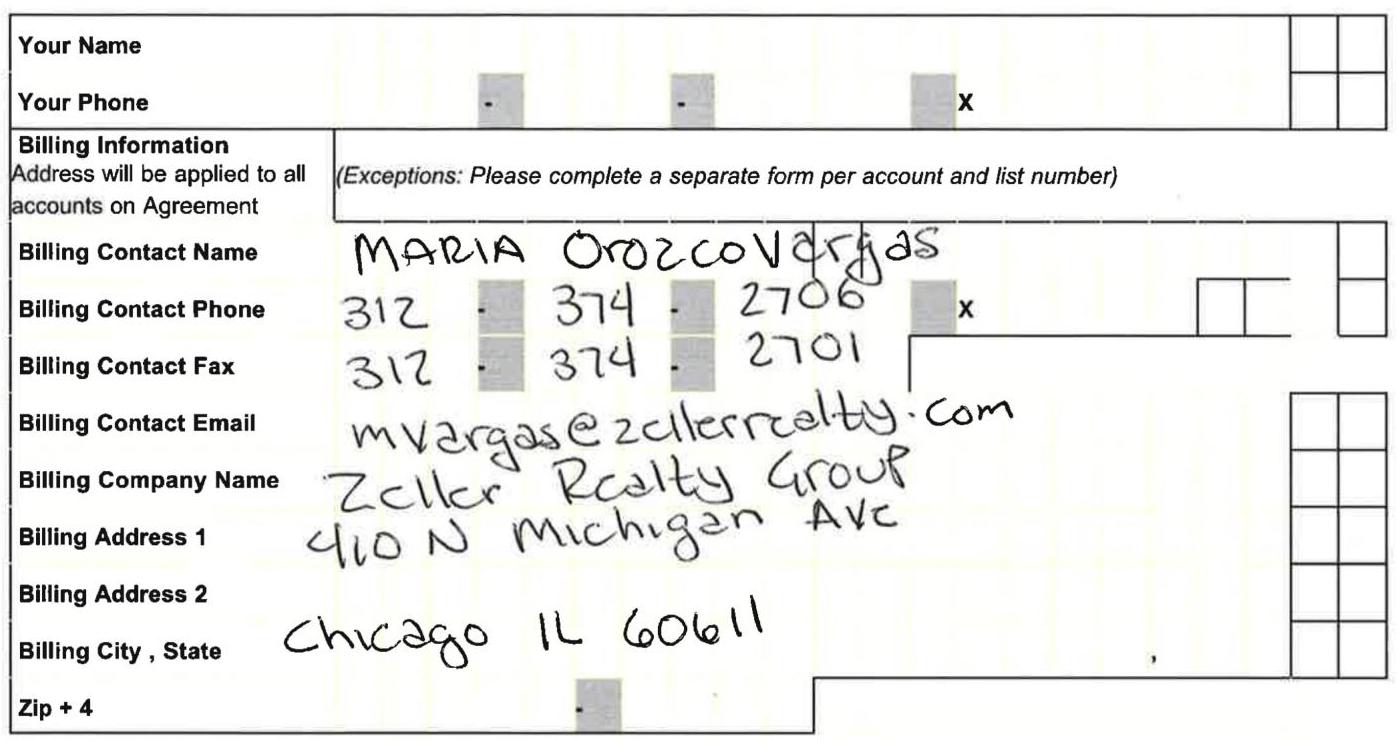 Your Name
Your Phone - - X
Billing Information
Address will be applied to all
accounts on Agreement
(Exceptions: Please complete a separate form per account and list number)
Billing Contact Name MARIA Orozco Vargas
Billing Contact Phone 312 - 374 - 2706 X
Billing Contact Fax 312 - 374 - 2701
Billing Contact Email mvargas@zellerrealty.com
Billing Company Name Zeller Realty Group
Billing Address 1 410 N Michigan Ave
Billing Address 2
Billing City , State Chicago IL 60611 ,
Zip + 4 -